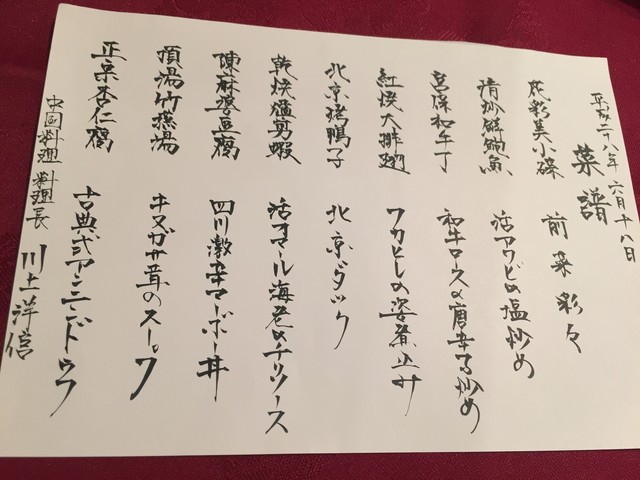 平成二十八年 六月十八日
菜譜
花彩美小碟 前菜彩々
清炒鮮鮑魚 活アワビの塩炒め
宮保和牛丁 和牛ロースの唐辛子炒め
紅焼大排翅 フカヒレの姿煮込み
北京烤鴨子 北京ダック
乾焼龍蝦 活オマール海老のチリソース
陳麻婆豆腐 四川激辛マーボー丼
頂湯竹燕湯 キヌガサ茸のスープ
正宗杏仁腐 古典式アンニンドウフ
中国料理 料理長 川上洋信